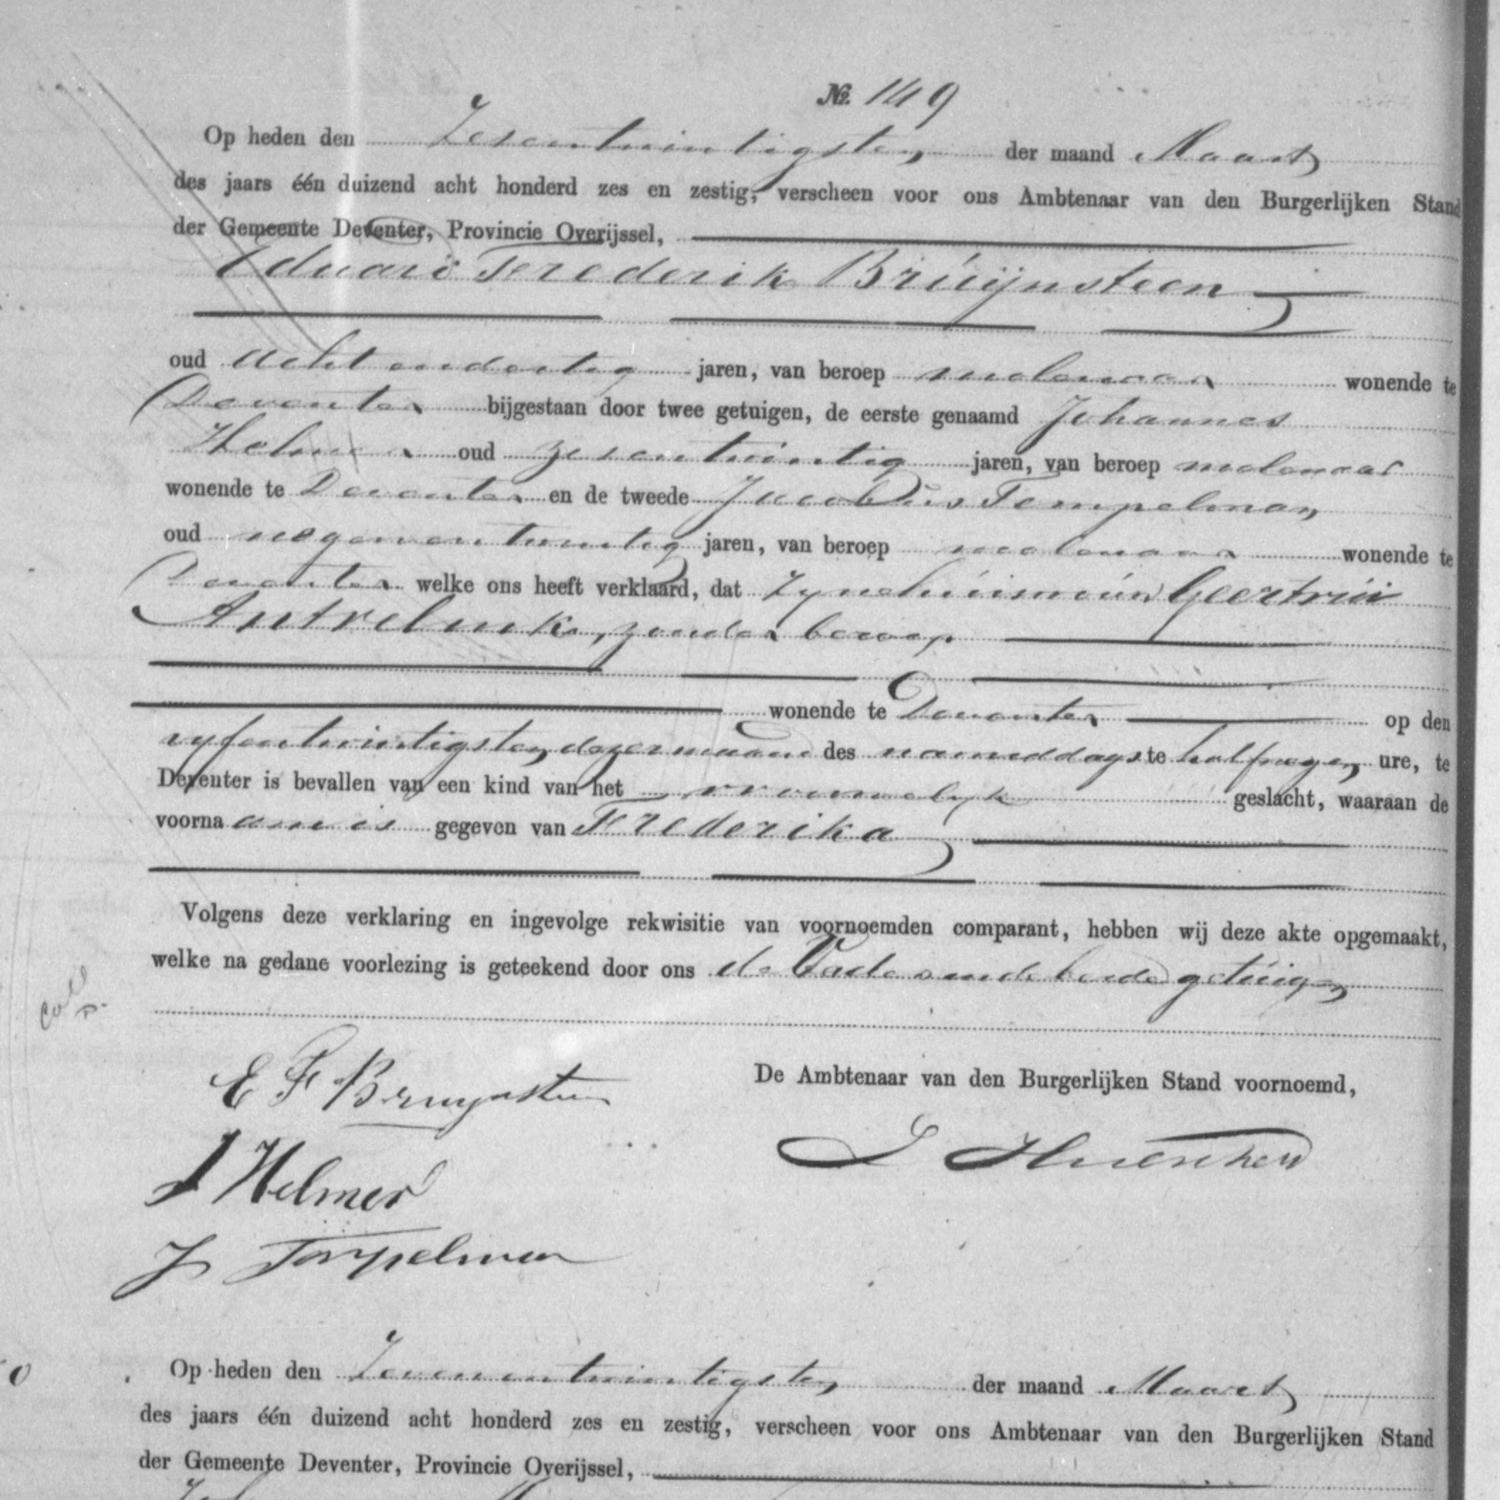 № 149
Op heden den Zesentwintigsten der maand Maart
des jaars één duizend acht honderd zes en zestig, verscheen voor ons Ambtenaar van den Burgerlijken Stand
der Gemeente Deventer, Provincie Overijssel,
Eduard Frederik Bruijnsteen
oud achtendertig jaren, van beroep molenaar wonende te
Deventer bijgestaan door twee getuigen, de eerste genaamd Johannes
Helmer oud zesentwintig jaren, van beroep molenaar
wonende te Deventer en de tweede Jacobus Tempelman
oud negenentwintig jaren, van beroep molenaar wonende te
Deventer welke ons heeft verklaard, dat zyne huisvrouw Geertrui
Antrebuke, zonder beroep
wonende te Deventer op den
vyfentwintigsten dezer maand des namiddags te half negen ure, te
Deventer is bevallen van een kind van het vrouwelyk geslacht, waaraan de
voornaam is gegeven van Frederika
Volgens deze verklaring en ingevolge rekwisitie van voornoemden comparant, hebben wij deze akte opgemaakt,
welke na gedane voorlezing is geteekend door ons de Vader en de beide getuigen
Coll
E F Bruynsteen
De Ambtenaar van den Burgerlijken Stand voornoemd,
J Helmer
J Tempelman
Op heden den Zevenentwintigsten der maand Maart
des jaars één duizend acht honderd zes en zestig, verscheen voor ons Ambtenaar van den Burgerlijken Stand
der Gemeente Deventer, Provincie Overijssel,